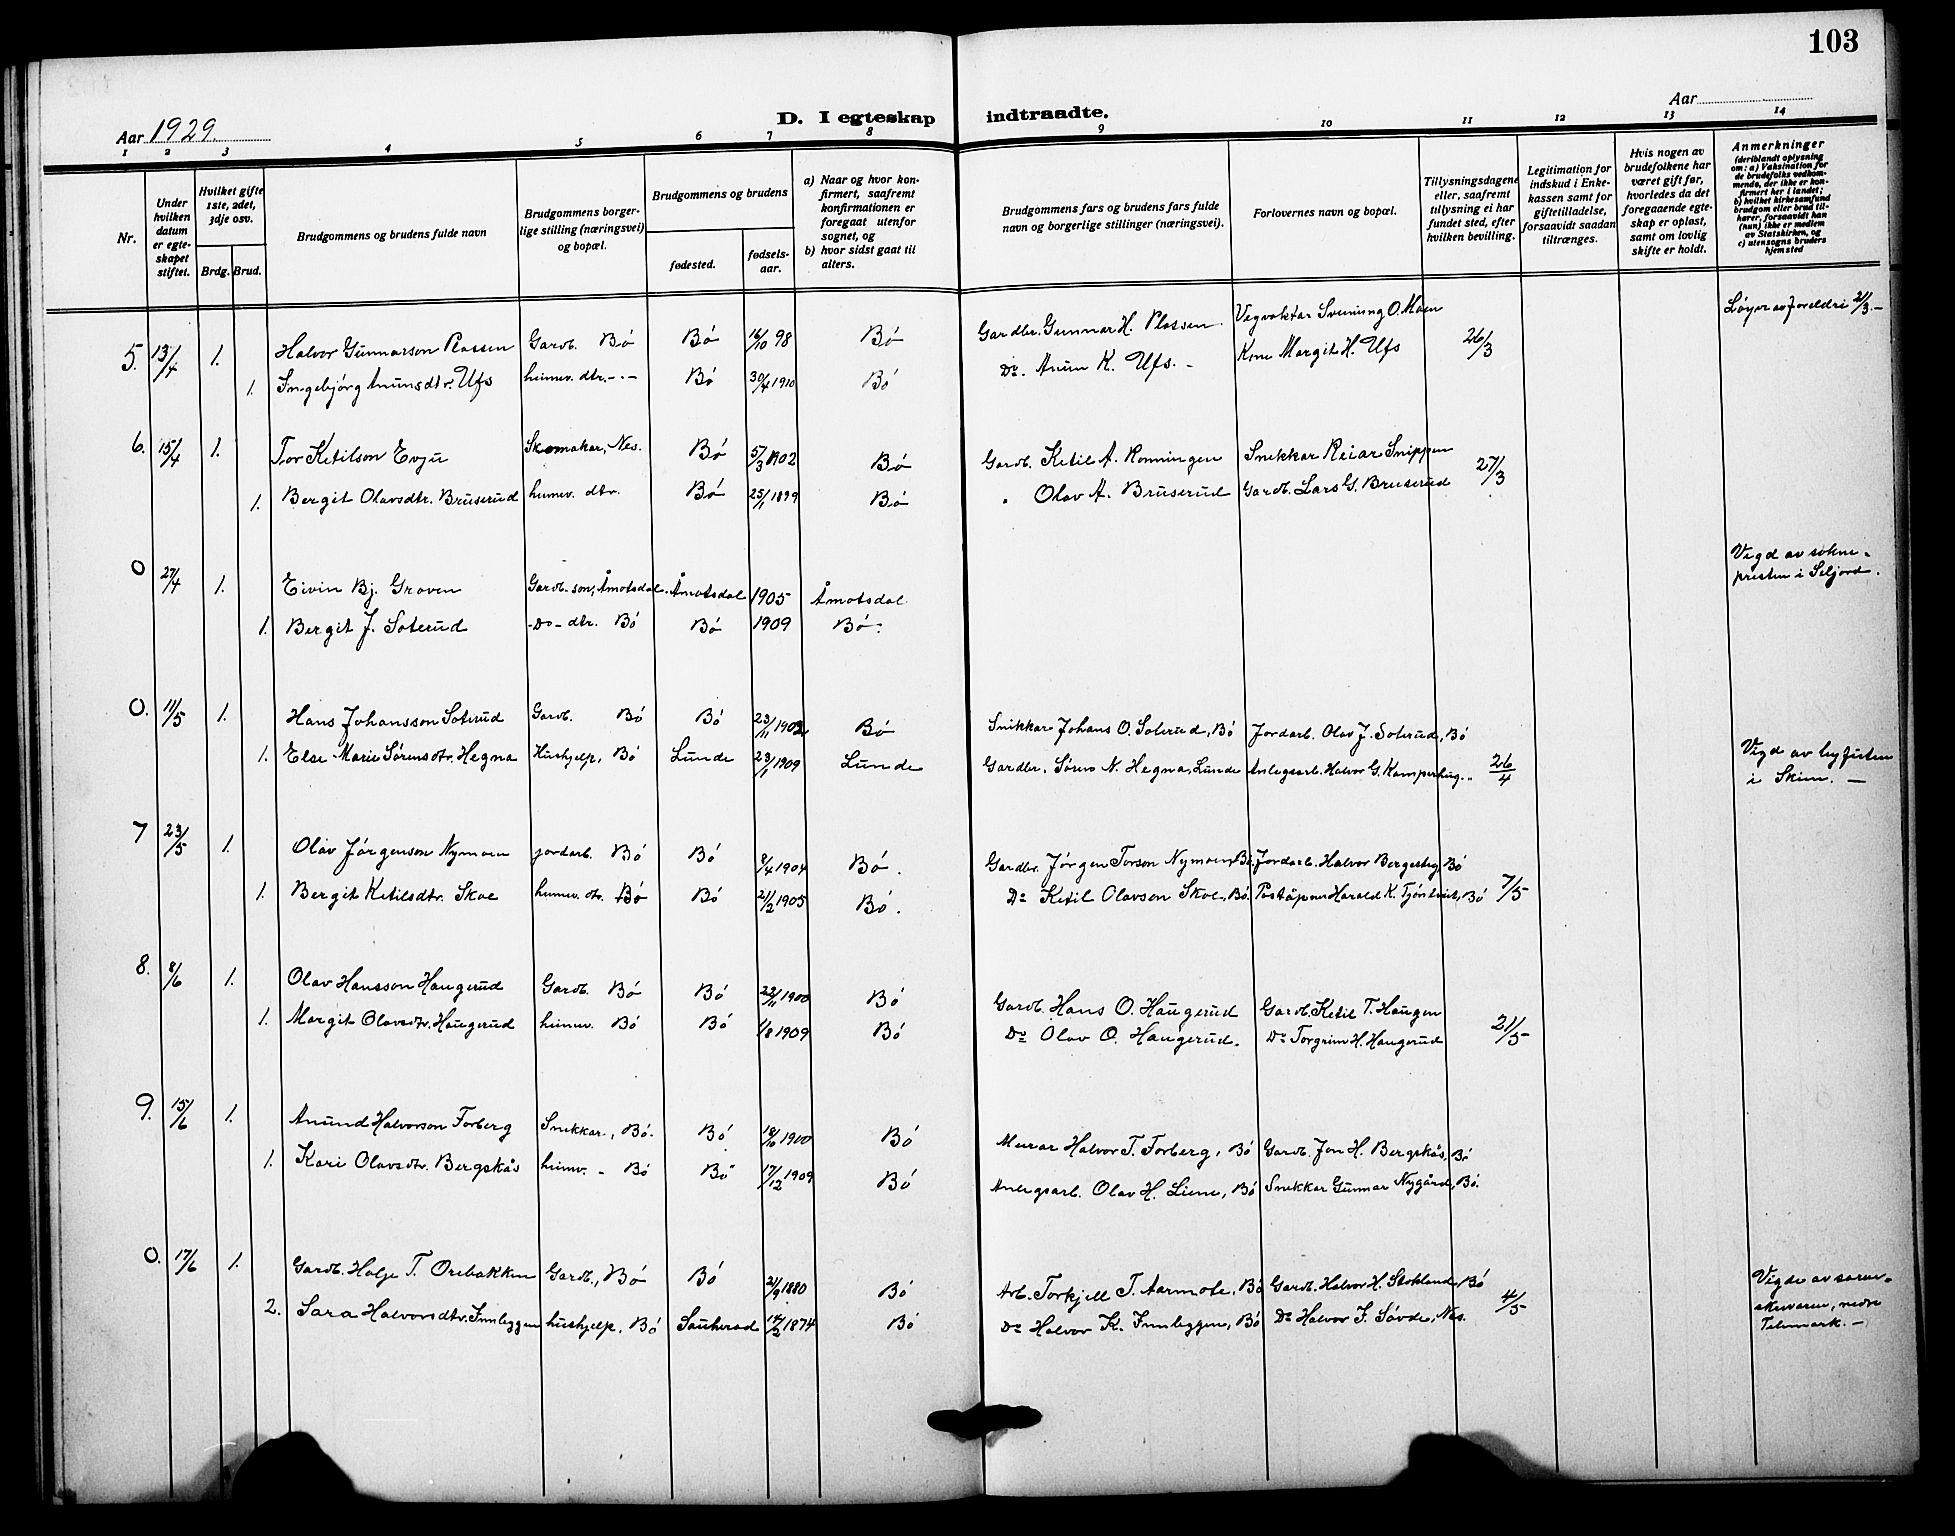 103
Aar 1929.
D. I egteskap indtraadte.
Aar
1 2 3 4 5 6 7 8 9 10 11 12 13 14
Nr.
Under hvilken datum er egteskapet stiftet.
Hvilket gifte 1ste, 2det, 3dje osv.
Brdg. Brud.
Brudgommens og brudens fulde navn
Brudgommens borgerlige stilling (næringsvei) og bopæl.
Brudgommens og brudens
fødested.
fødselsaar.
a) Naar og hvor konfirmert, saafremt konfirmationen er foregaat utenfor sognet, og
b) hvor sidst gaat til alters.
Brudgommens fars og brudens fars fulde navn og borgerlige stillinger (næringsvei).
Forlovernes navn og bopæl.
Tillysningsdagene eller, saafremt tillysning ei har fundet sted, efter hvilken bevilling.
Legitimation for indskud i Enkekassen samt for giftetilladelse, forsaavidt saadan tiltrænges.
Hvis nogen av brudefolkene har været gift før, hvorledes da det foregaaende egteskap er opløst, samt om lovlig skifte er holdt.
Anmerkninger (deriblandt oplysning om: a) Vaksination for de brudefolks vedkommende, der ikke er konfirmert her i landet; b) hvilket kirkesamfund brudgom eller brud tilhører, forsaavidt han (hun) ikke er medlem av Statskirken, og c) utensogns bruders hjemsted
5. 13/4 1. Halvor Gunnarson Plassen Gardb. Bó Bó 16/10 98 Bó Gardbr. Gunnar H. Plassen Vegvoktar Sveinung O. Moen 26/3 Løyve av foreldri 21/3. -
1. Ingebjörg Anunsdtr. Ufs heimev. dtr. - . - Bó 30/4 1910 Bó Do. Anun K. Ufs. - Kone Margit H. Ufs
6. 15/4 1. Tor Ketilson Evju Skomakar, Nes. Bó 5/3 1902 Bó Gardb. Ketil A. Ronningen Snekkar Reiar Snippen 27/3
1. Bergit Olavsdtr. Bruserud heimev. dtr. Bó 25/1 1899 Bó " Olav A. Bruserud Gardb. Lars G. Bruserud
0 27/4 1. Eivin Bj. Groven Gardb. son, Åmotsdal. Åmotsdal 1905 Åmotsdal Vigd av soknepresten i Seljord.
1. Bergit J. Soterud -Do- dtr. Bó Bó 1909 Bó.
0. 11/5 1. Hans Johansson Soterud Gardb. Bó Bó 23/11 1902 Bó Snikkar Johans O. Soterud, Bó Jordarb. Olav J. Soterud, Bó
1. Else Marie Sørensdtr. Hegna Hushjelp, Bó Lunde 23/1 1909 Lunde Gardbr. Søren N. Hegna, Lunde Anlegsarb. Halvor G. Kamperhaug. " 26/4 Vigd av byfuten i Skien. -
7 23/5 1. Olav Jørgenson Nymoen jordarb. Bó Bó 8/4 1904 Bó. Gardbr. Jørgen Torson Nymoen, Bó. Jordarb. Halvor Bergesteg, Bó
1. Bergit Ketilsdtr. Skoe heimev. dtr. Bó Bó 21/2 1905 Bó. Do Ketil Olavson Skoe, Bó. Poståpnar Harald K. Tjóntveit, Bó 7/5
8. 8/6 1. Olav Hansson Haugerud Gardb. Bó Bó 22/11 1900 Bó Gardb. Hans O. Haugerud Gardb. Ketil T. Haugen
1. Margit Olavsdtr. Haugerud heimev. Bó Bó 1/8 1909 Bó Do Olav O. Haugerud. Do Torgrim H. Haugerud 21/5
9. 15/6 1. Anund Halvorson Forberg Snekkar, Bó. Bó 18/10 1900 Bó Murar Halvor T. Forberg, Bó Gardb. Jon H. Bergskås, Bó
1. Kari Olavsdtr. Bergskås heimv. - Bó Bó 17/12 1909 Bó Anlegsarb. Olav H. Liene, Bó Snekkar Gunnar Nygård, Bó.
0. 17/6 1. Gardb. Halje T. Orebakken Gardb., Bó Bó 21/9 1880 Bó Arb. Torkjell T. Aarmote, Bó Gardb. Halvor H. Stokland, Bó 4/5 Vigde av sorenskrivaren, nedre Telemark. -
2. Sara Halvorsdtr. Innleggen hushjelp, Bó Sauherad 14/2 1874 Bó Do Halvor K. Innleggen, Bó Do Halvor J. Sóvde, Nes.